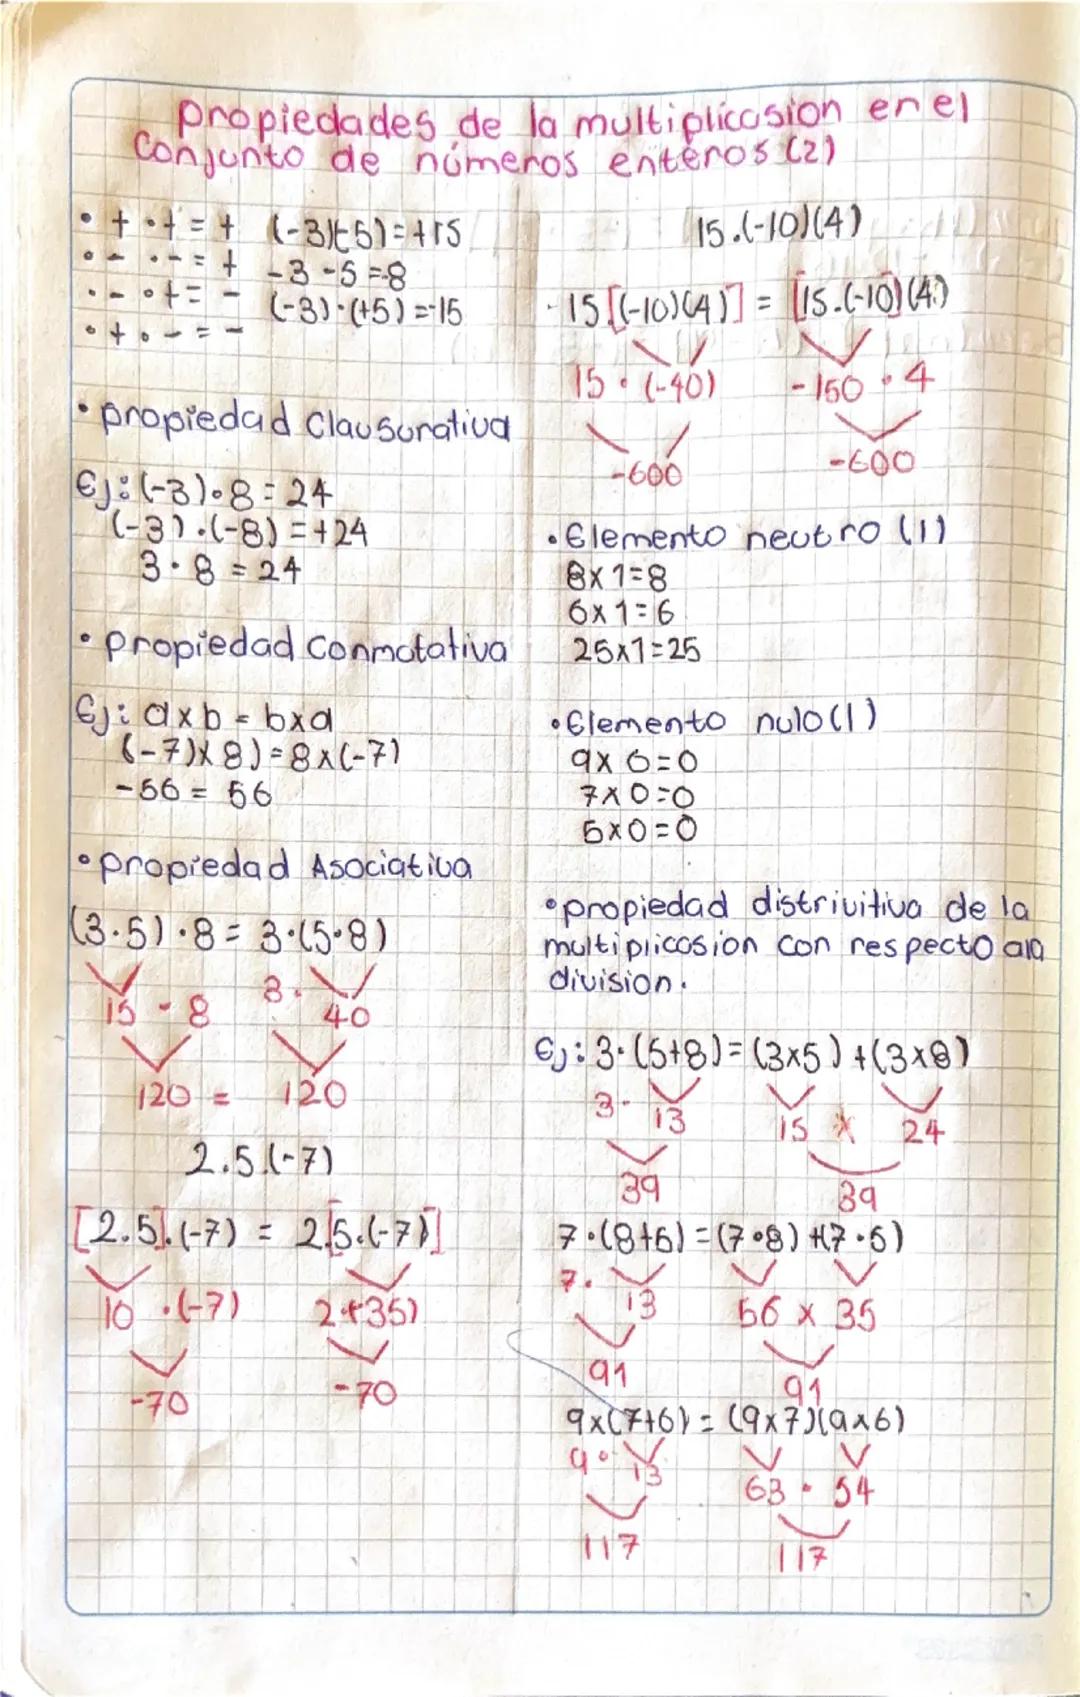 propiedades de la multiplicasion en el
conjunto de números enteros (2)
• + • + = + (-3)(-5) = +15
• - • - = + -3 -5 =-8
• - • + = - (-3) • (+5) =-15
• + • - = -
• propiedad Clausurativa
Ej: (-3) • 8 = 24
(-3) • (-8) = +24
3 • 8 = 24
• propiedad Conmutativa
Ej: a x b = b x a
(-7) x 8) = 8 x (-7)
-56 = 56
• propiedad Asociativa
(3 • 5) • 8 = 3 • (5 • 8)
15 • 8 3 • 40
120 = 120
2.5.(-7)
[2.5].(-7) = 2[5.(-7)]
10 • (-7) 2+35)
-70 -70
15.(-10)(4)
15[(-10)(4)] = [15.(-10)](4)
15 • (-40) -150 • 4
-600 -600
• Elemento neutro (1)
8x1=8
6x1=6
25x1=25
• Elemento nulo (1)
9x0=0
7x0=0
5x0=0
• propiedad distriuitiva de la
multiplicasion con respecto ala
division.
Ej: 3 • (5+8) = (3x5) + (3x8)
3 • 13 15 x 24
39 39
7 • (8+5) = (7 • 8) +(7 • 5)
7 • 13 56 x 35
91 91
9x(7+6) = (9x7)(9x6)
9 • 13 63 • 54
117 117